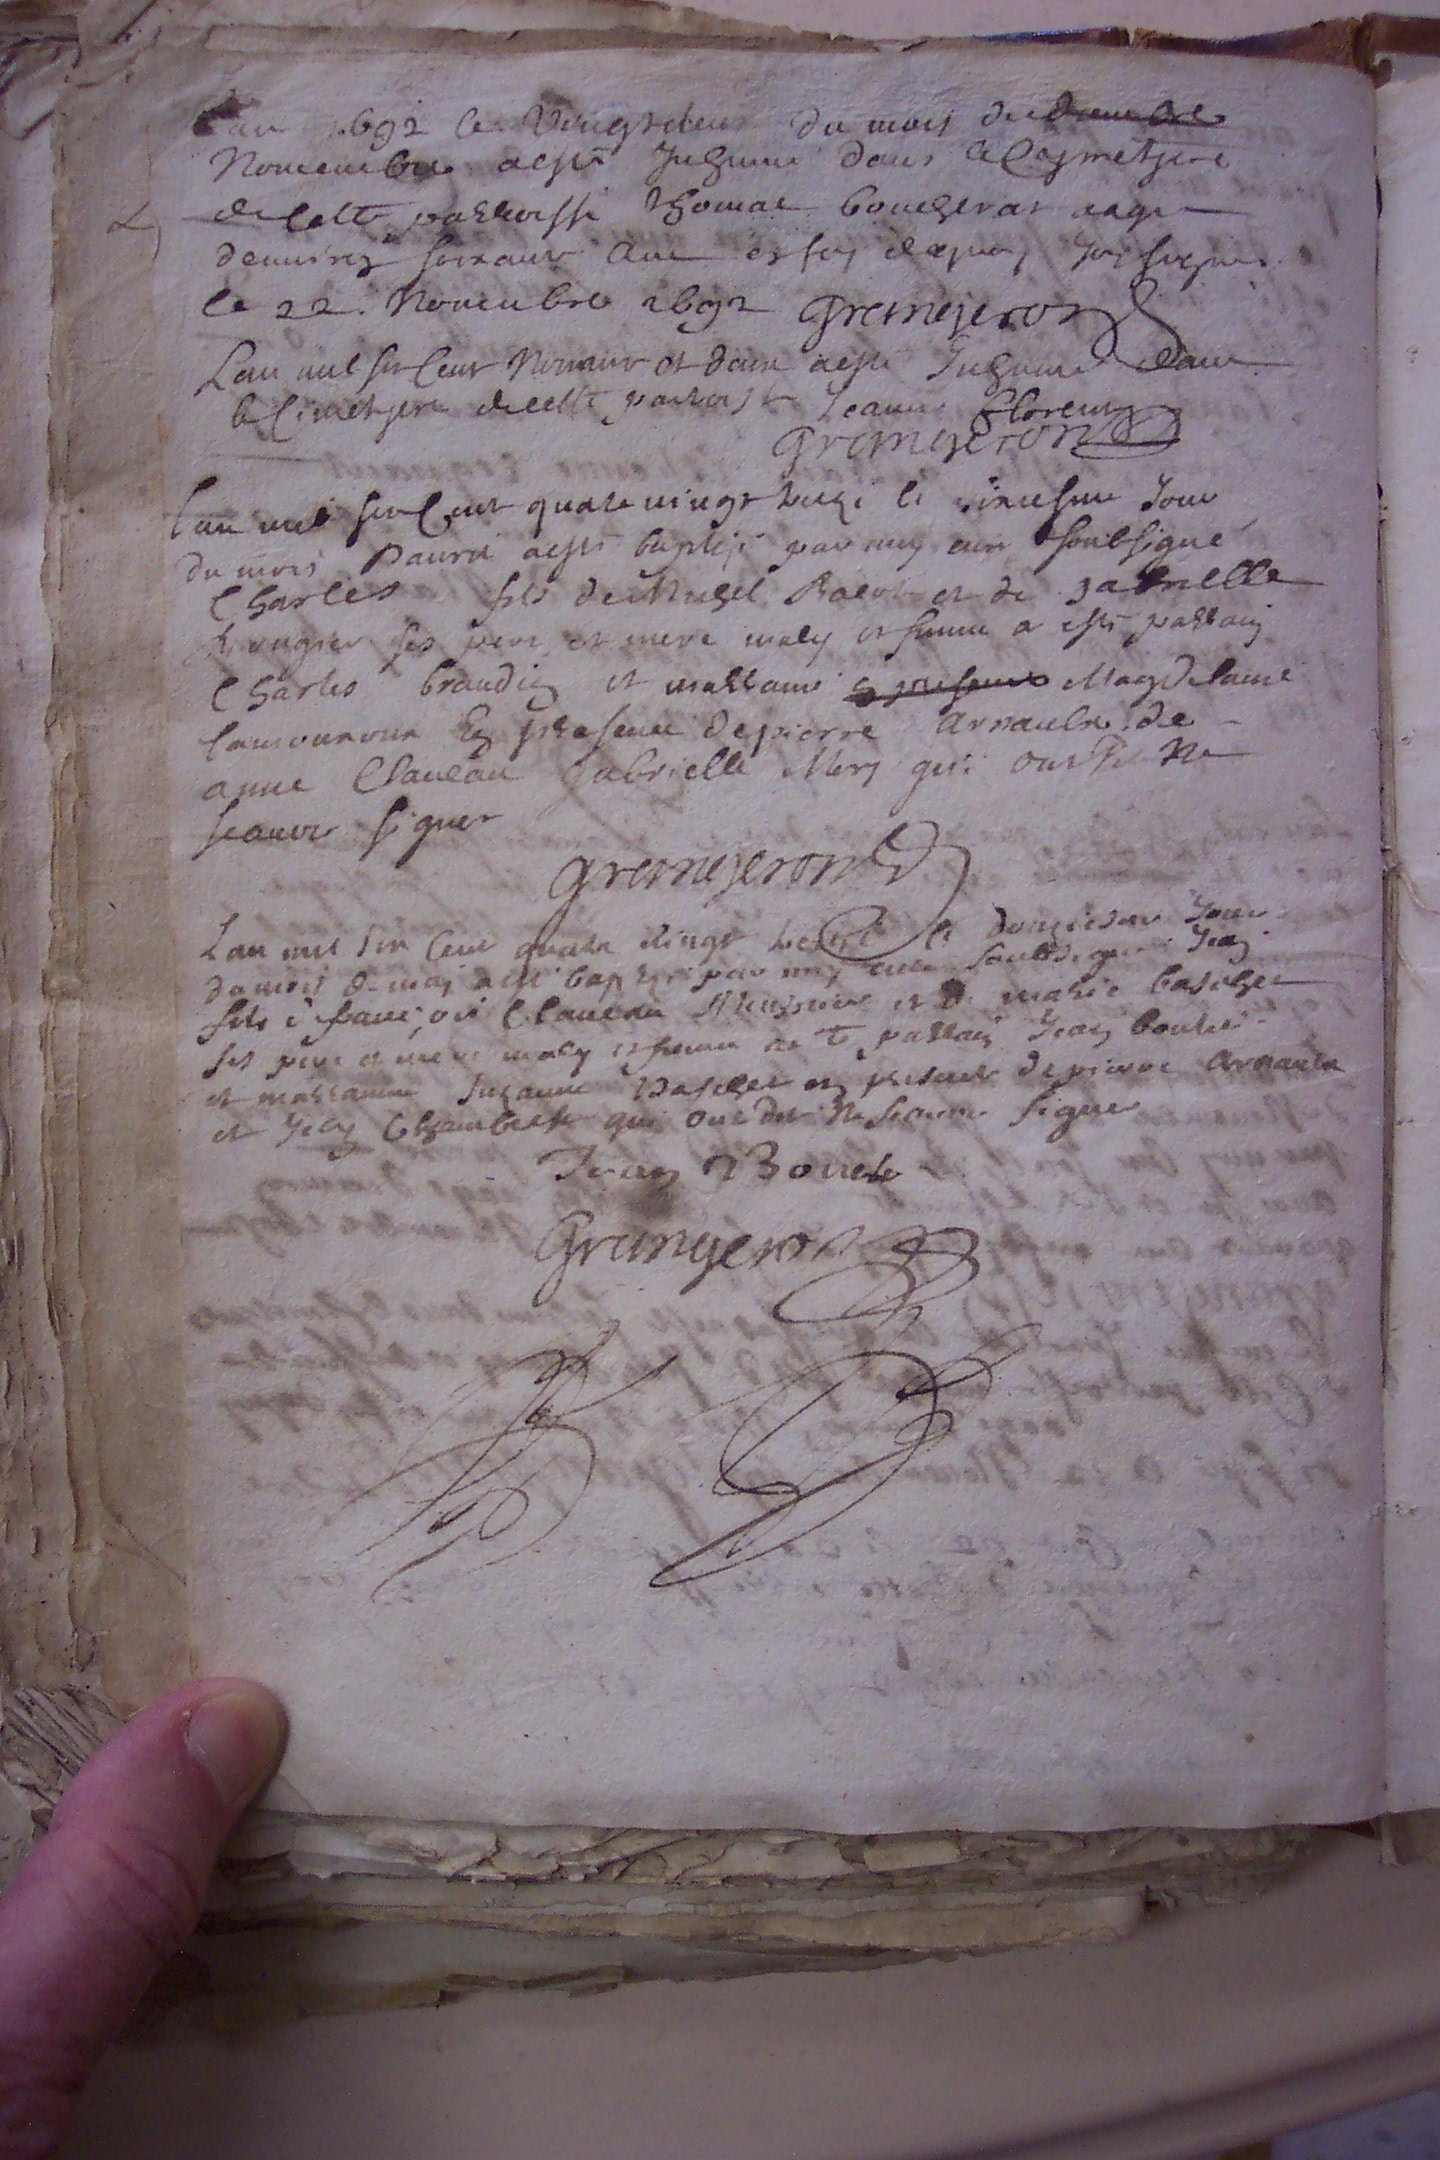 Lan 1692 le vingt deux du mois de decembre
Nouembre a esté Inhumé dans le Cymetiere
de cette parroisse Thomas boucherat aagé
denuiron soixante ans en foy dequoy Jay signé
le 22. Nouembre 1692 Gremgeron
Lan mil six cent Nonante et deux a esté Inhumé dans
le cimetyere de cette parroisse Jeanne florent
Gremgeron
Lan mil six Cent quatre vingt treize le sixiesme Jour
du mois dauril a esté baptisé par moy curé soubsigné
Charles fils de Michel et de gabrielle
ses pere et mere mary et femme a esté parrain
Charles braudin et marraine en presence Magdelaine
lamoureux En presence de pierre Arnault de
anne Claueau gabrielle Mery qui ont dit Ne
scauoir signer
Gremgeron
Lan mil six Cent quatre vingt treize le douziesme Jour
du mois de may a esté baptizé par moy curé soubsigné Jean
fils de francois Claueau et de marie baschet
ses pere et mere mary et femme a esté parrain Jean boutet
et marraine Suzanne Baschet en presence de pierre Arnault
et Jean Chambert qui ont dit Ne scauoir signer
Jean Boutet
Gremgeron